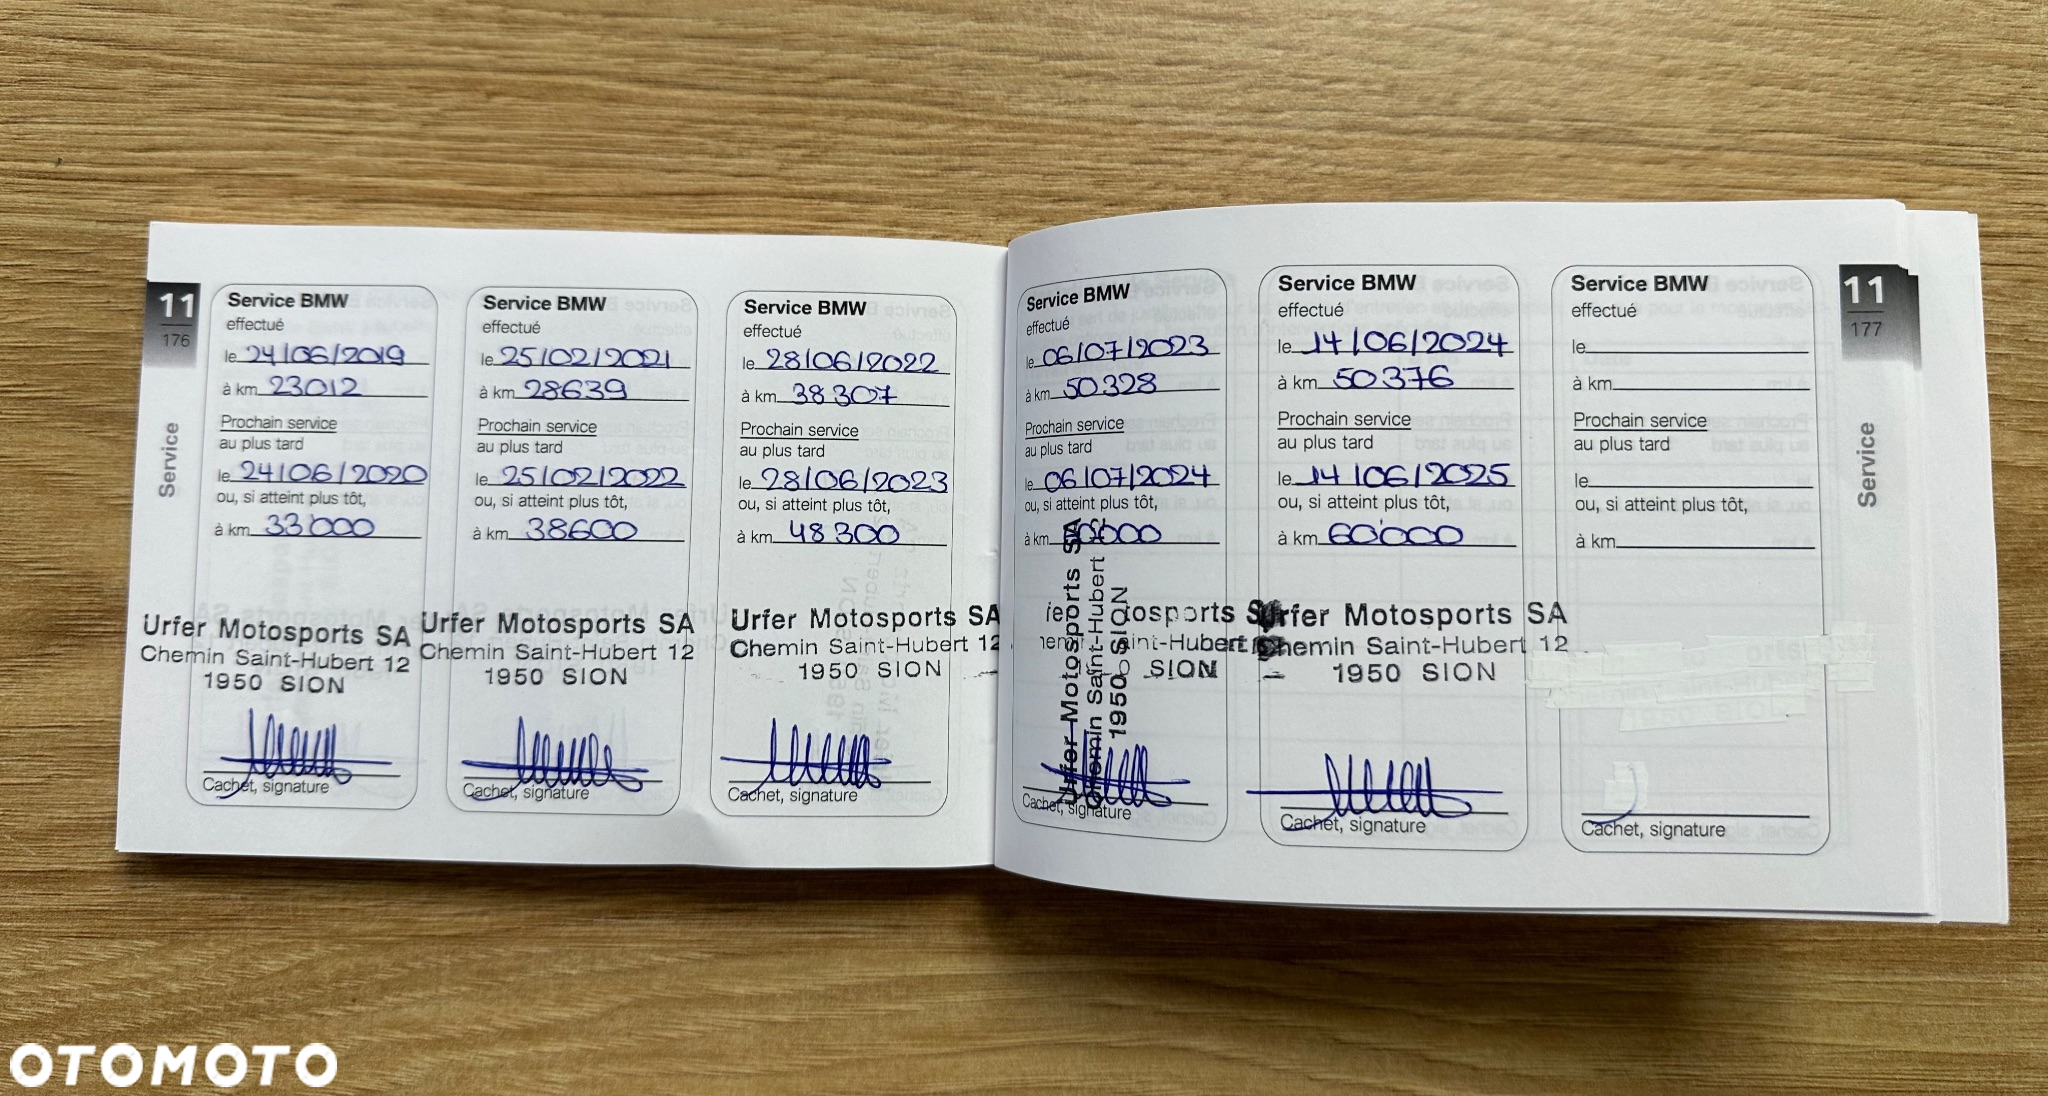 11
176
Service
Service BMW
effectué
le 24/06/2019
à km 23012
Prochain service
au plus tard
le 24/06/2020
ou, si atteint plus tôt,
à km 33'000
Urfer Motosports SA
Chemin Saint-Hubert 12
1950 SION
Cachet, signature
Service BMW
effectué
le 25/02/2021
à km 28639
Prochain service
au plus tard
le 25/02/2022
ou, si atteint plus tôt,
à km 38600
Urfer Motosports SA
Chemin Saint-Hubert 12
1950 SION
Cachet, signature
Service BMW
effectué
le 28/06/2022
à km 38307
Prochain service
au plus tard
le 28/06/2023
ou, si atteint plus tôt,
à km 48300
Urfer Motosports SA
Chemin Saint-Hubert 12
1950 SION
Cachet, signature
Service BMW
effectué
le 06/07/2023
à km 50328
Prochain service
au plus tard
le 06/07/2024
ou, si atteint plus tôt,
à km 60000
Urfer Motosports SA
Chemin Saint-Hubert
1950 SION
SION
Cachet, signature
Service BMW
effectué
le 14/06/2024
à km 50376
Prochain service
au plus tard
le 14/06/2025
ou, si atteint plus tôt,
à km 60'000
Urfer Motosports SA
Chemin Saint-Hubert 12
1950 SION
Cachet, signature
Service BMW
effectué
le
à km
Prochain service
au plus tard
le
ou, si atteint plus tôt,
à km
Cachet, signature
11
177
Service
OTOMOTO